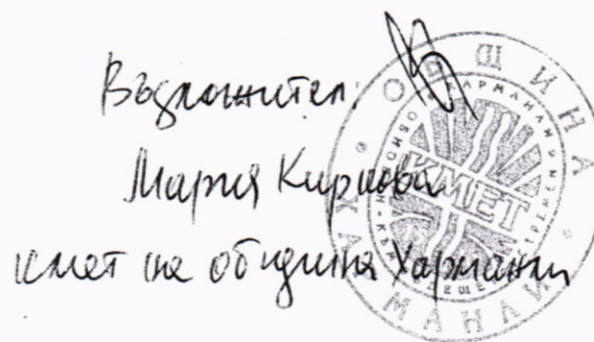 Възложител:
Мария Киркова
кмет на община Харманли
ОБЩИНА
ХАРМАНЛИ
КМЕТ